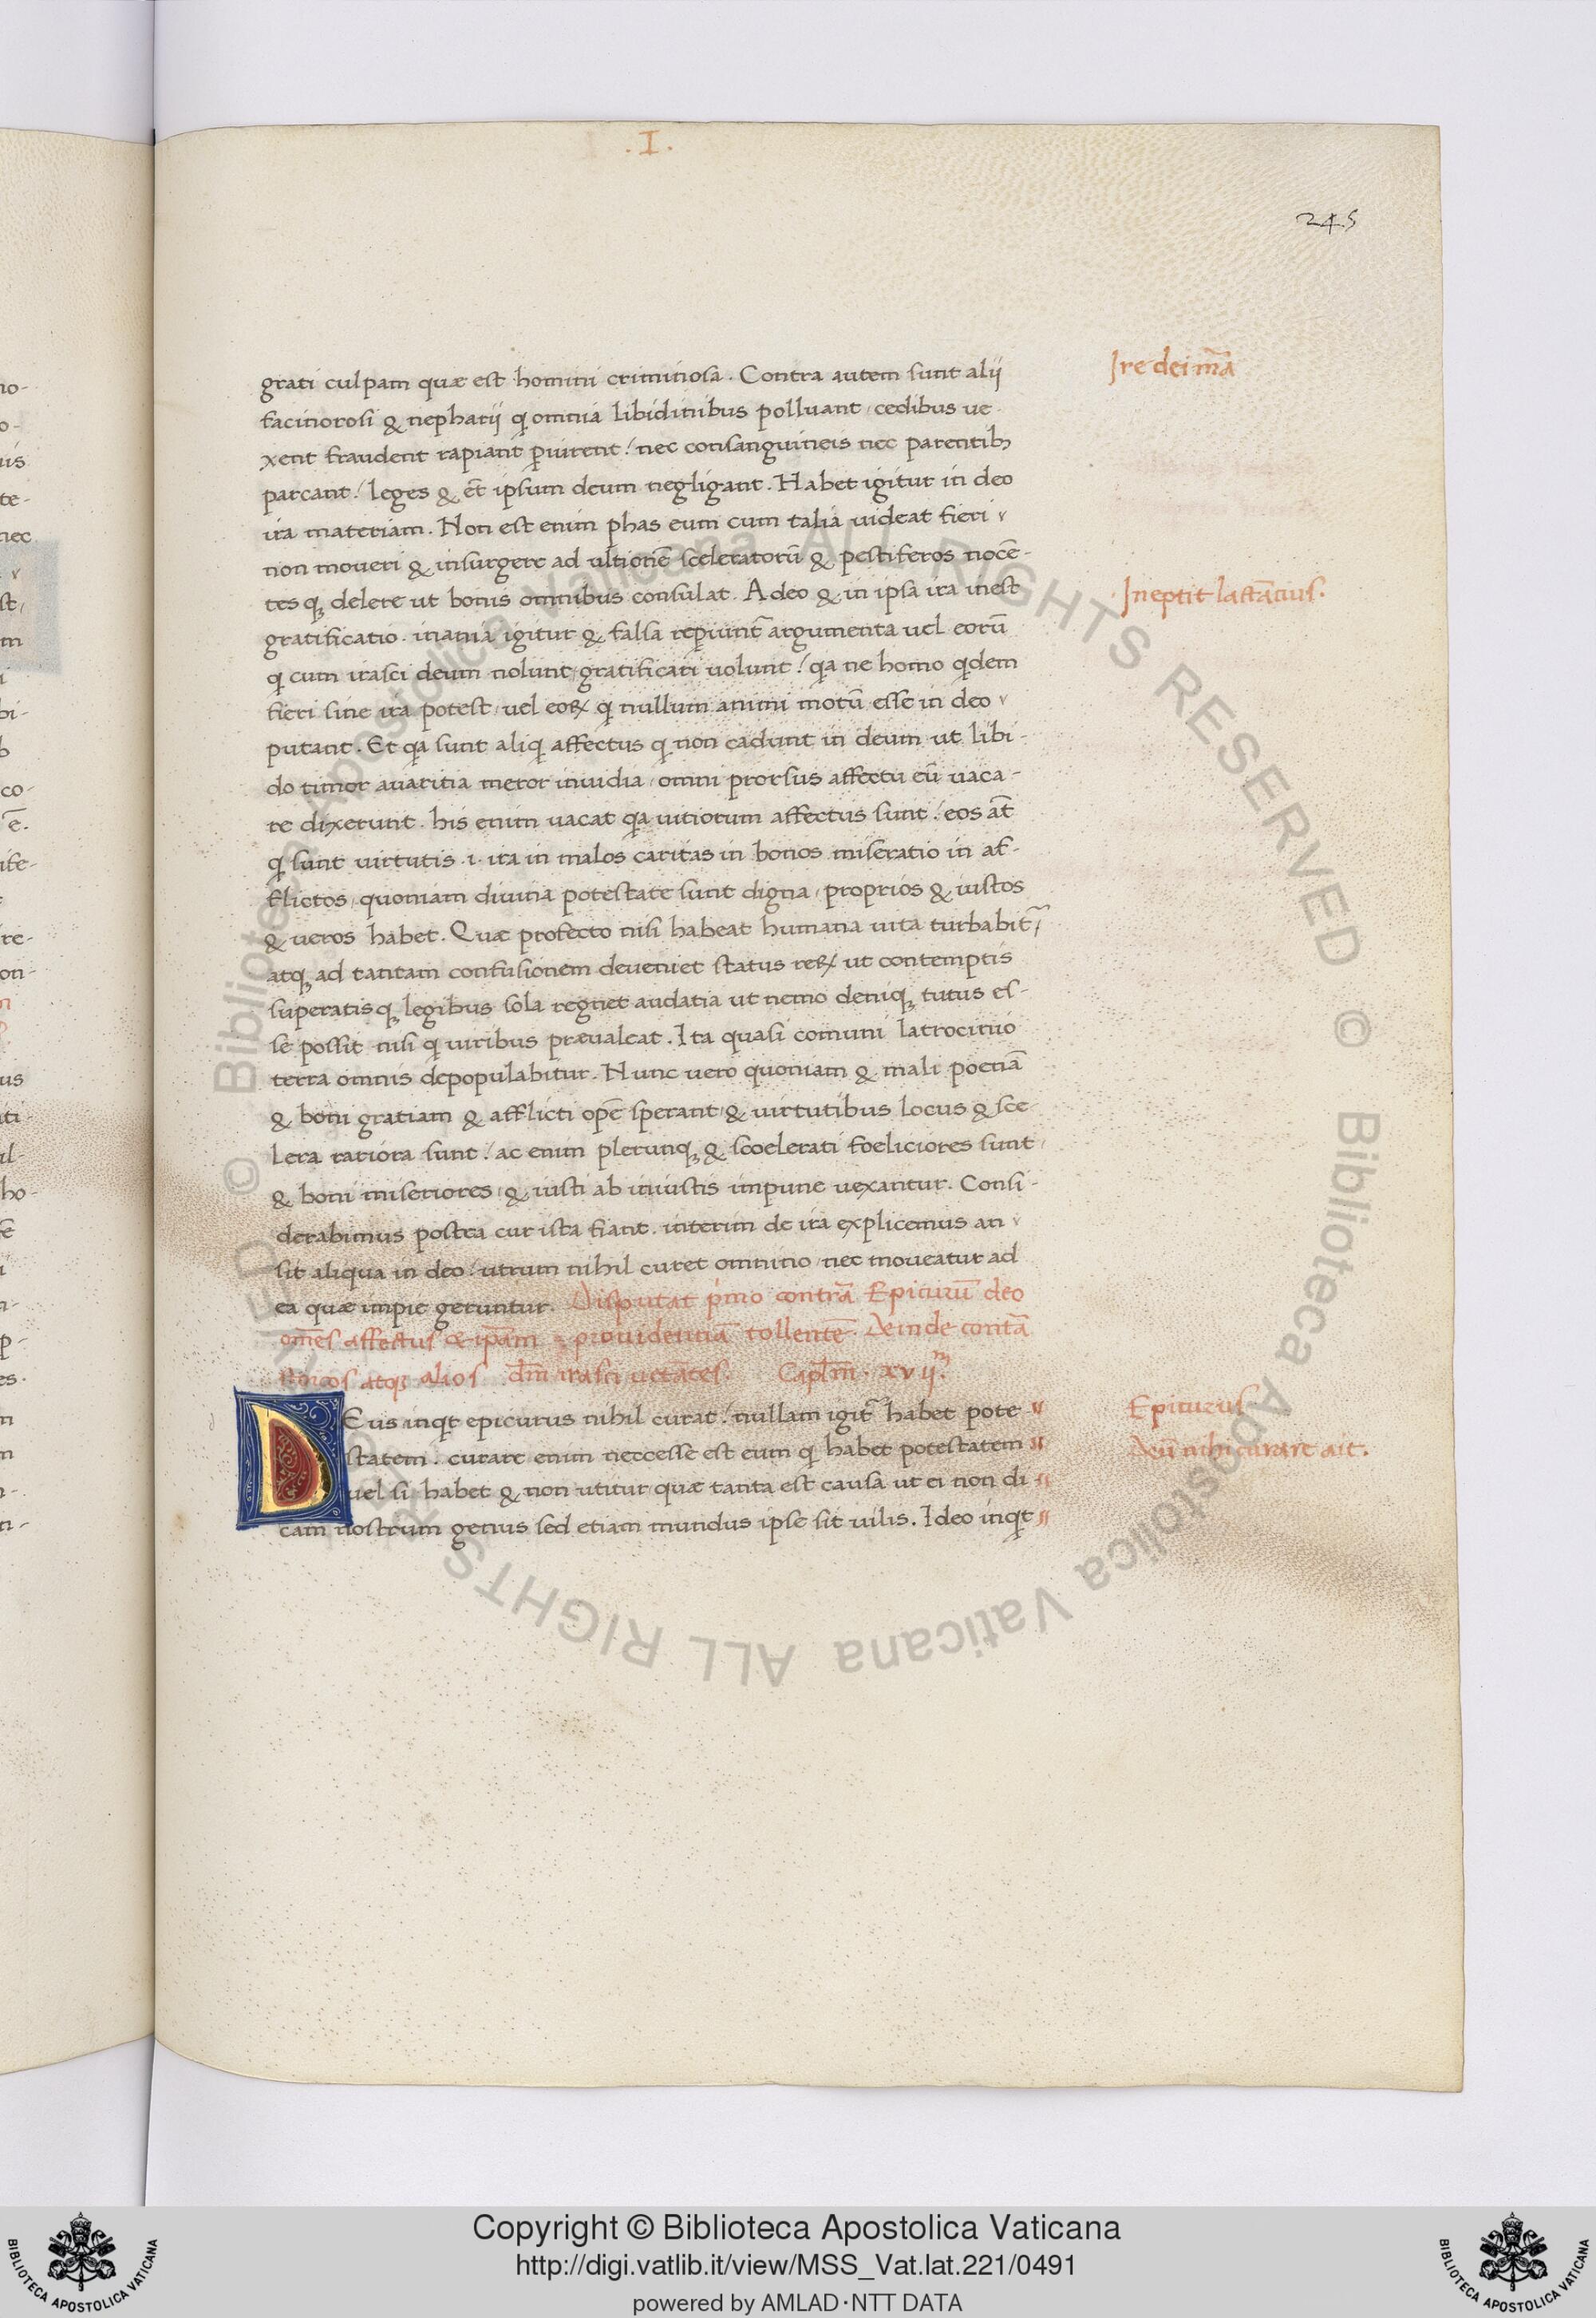 .I.
245
grati culpam quæ est homini criminosa. Contra autem sunt alij
Ire dei mã
facinorosi & nepharij q omnia libidinibus polluant, cedibus ue-
xent fraudent rapiant piurent! nec consanguineis nec parentib;
parcant! leges & et̃ ipsum deum negligant. Habet igitur in deo
ira materiam. Non est enim phas eum cum talia uideat fieri
non moueri & insurgere ad ultionẽ sceleratorũ & pestiferos nocẽ-
tes q; delere ut bonis omnibus consulat. Adeo & in ipsa ira inest
Ineptit lactãcius.
gratificatio. inania igitur & falsa repiunt̃ argumenta uel eorũ
q cum irasci deum nolunt, gratificari uolunt! qa ne homo qdem
fieri sine ira potest, uel eoꝝ q nullum animi motũ esse in deo
putant. Et qa sunt aliq affectus q non cadunt in deum ut libi-
do timor auaritia meror inuidia, omni prorsus affectu eũ uaca-
re dixerunt. his enim uacat qa uitiorum affectus sunt! eos at̃
q sunt virtutis .i. ira in malos caritas in bonos miseratio in af-
flictos, quoniam diuina potestate sunt digna, proprios & iustos
& ueros habet. Quæ profecto nisi habeat humana uita turbabit̃,
atq; ad tantam confusionem deueniet status reꝝ ut contemptis
superatisq; legibus sola regnet audatia ut nemo deniq; tutus es-
se possit nisi q uiribus præualeat. Ita quasi comuni latrocinio
terra omnis depopulabitur. Nunc uero quoniam & mali poenã
& boni gratiam & afflicti opẽ sperant, & uirtutibus locus & sce-
lera rariora sunt! ac enim plerunq; & scoelerati foeliciores sunt,
& boni miseriores, & iusti ab iniustis impune uexantur. Consi-
derabimus postea cur ista fiant. interim de ira explicemus an
sit aliqua in deo! utrum nihil curet omnino, nec moueatur ad
ea quæ impie geruntur. Disputat pimo contrã Epicurũ deo
om̃es affectus & ipãm providentiã tollentẽ. Deinde contã
atq; alios dm̃ irasci uetãtes. Capl̃m. xvij.m
DEus inqt epicurus nihil curat! nullam igit̃ habet pote-
Epicurus
statem. curare enim neccesse est eum q habet potestatem
Deũ nihi curare ait.
uel si habet & non utitur quæ tanta est causa ut ei non di
cam nostrum genus sed etiam mundus ipse sit uilis. Ideo inqt
Copyright © Biblioteca Apostolica Vaticana
http://digi.vatlib.it/view/MSS_Vat.lat.221/0491
powered by AMLAD·NTT DATA